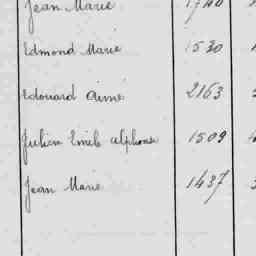 Jean Marie 1740
Edmond Marie 1530
Edouard Aimé 2163
Julien Emile Alphonse 1509
Jean Marie 1437